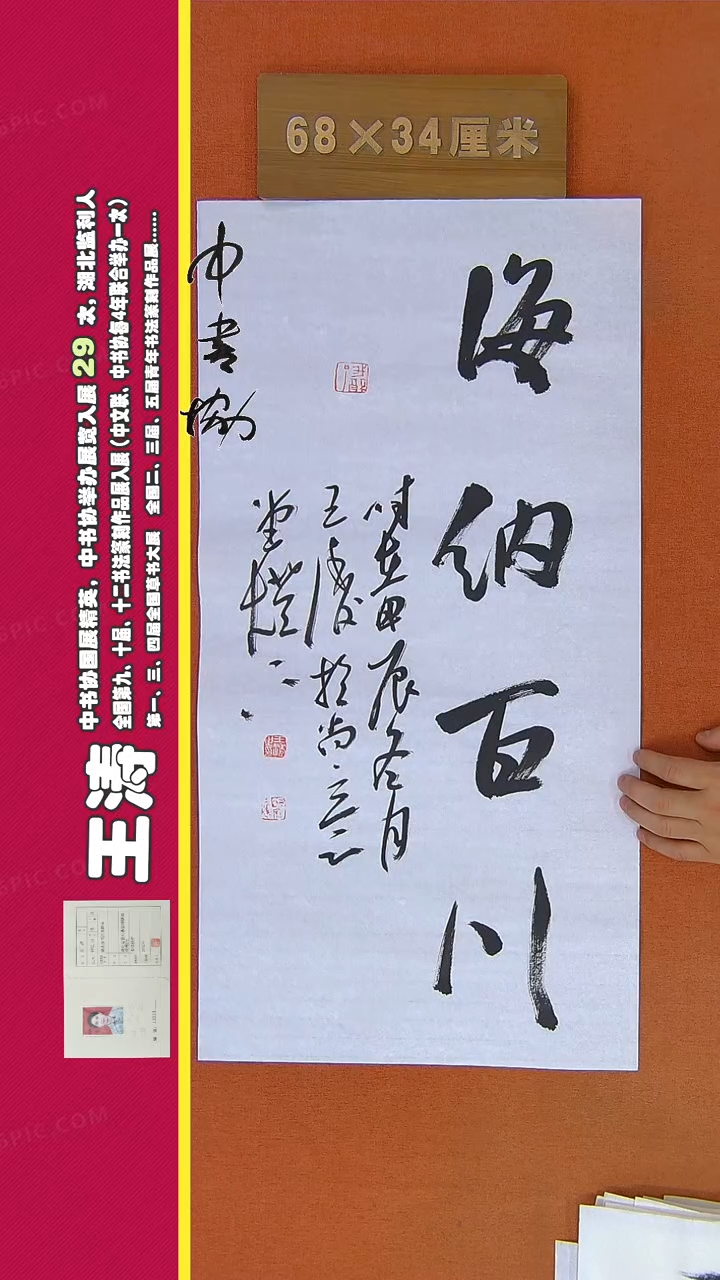 68×34厘米
海纳百川
时在甲辰冬月
王涛於尚三
中书协
王涛
中书协国展精英，中书协举办展览入展 29 次，湖北监利人
全国第九、十届、十二书法篆刻作品展入展（中文联、中书协每4年联合举办一次）
第一、三、四届全国草书大展 全国二、三届、五届青年书法篆刻作品展......